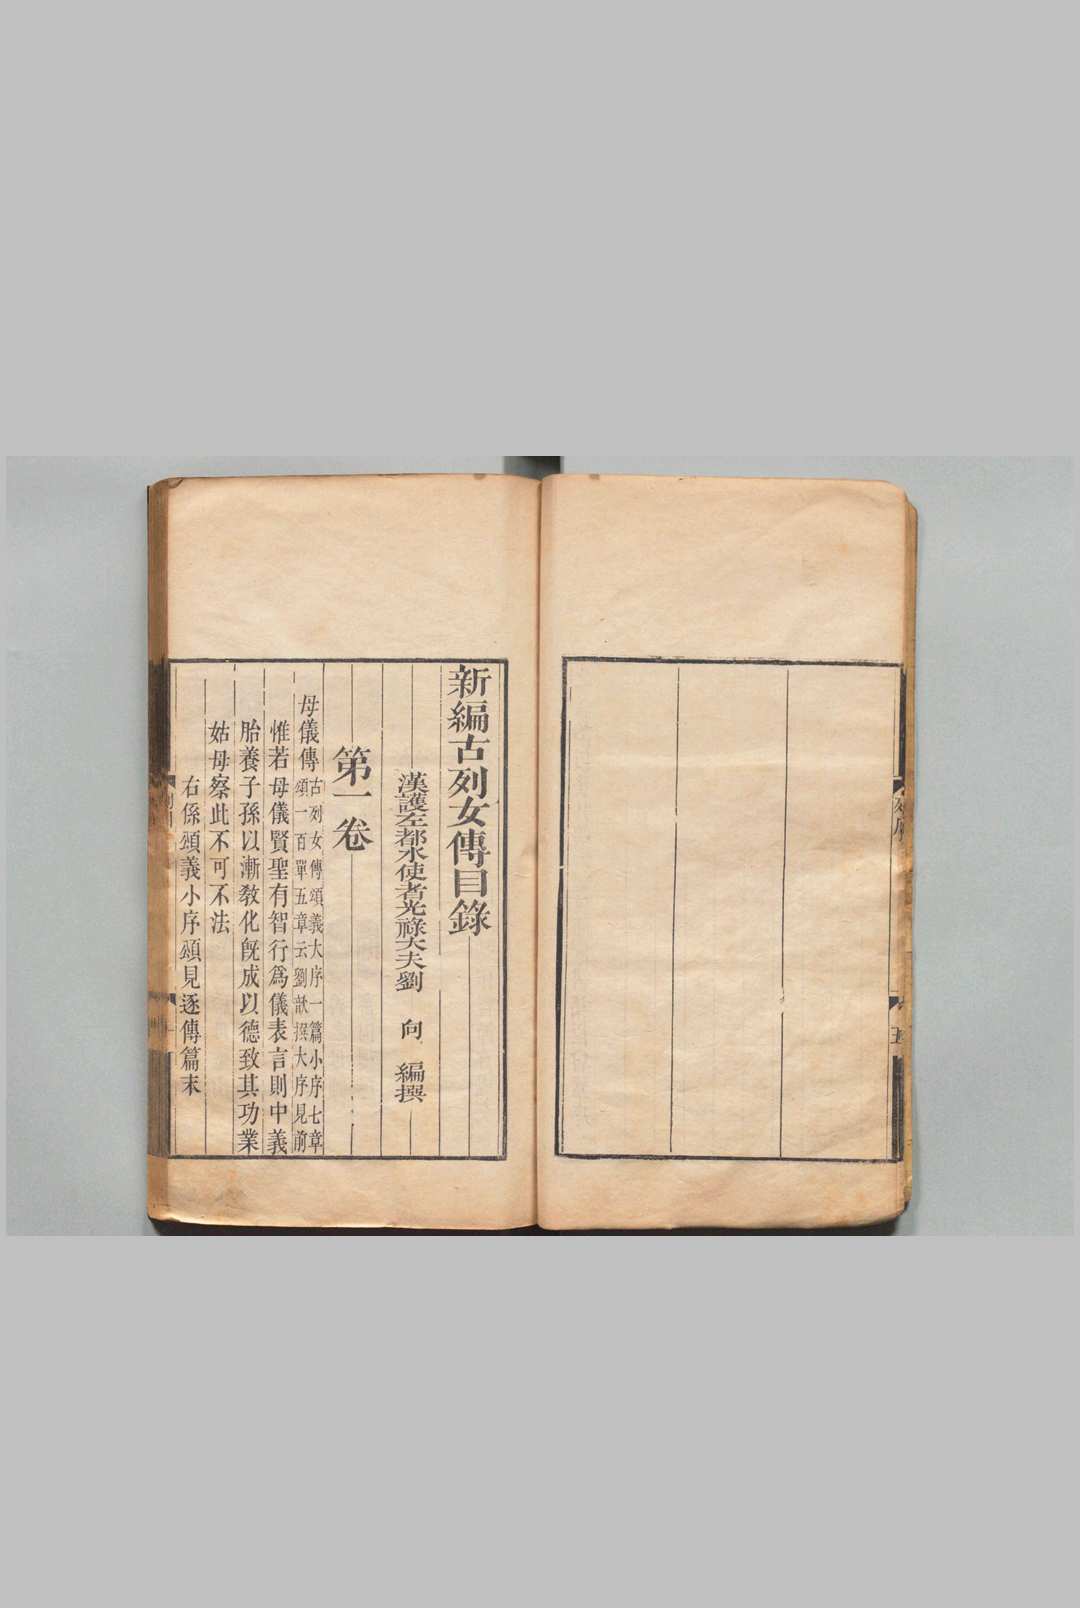 新編古列女傳目錄
漢護左都水使者光祿大夫劉　向　編撰
第一卷
母儀傳
古列女傳頌義大序一篇小序七章
頌一百單五章云劉歆撰大序見前
惟若母儀賢聖有智行爲儀表言則中義
胎養子孫以漸敎化旣成以德致其功業
姑母察此不可不法
右係頌義小序頌見逐傳篇末